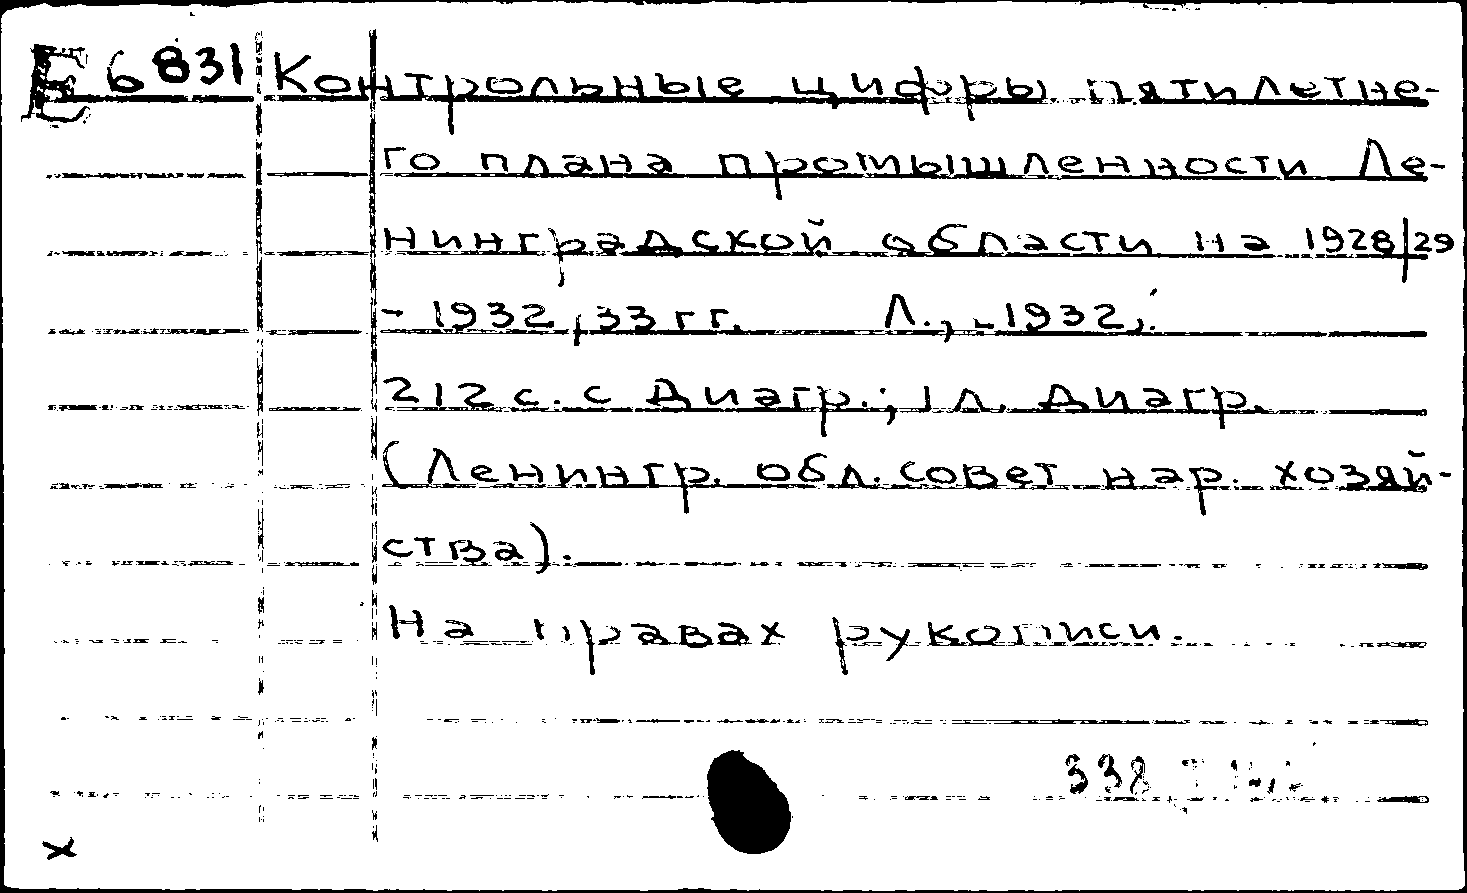 Е 6831 Контрольные цифры пятилетне-
го плана промышленности Ле-
нинградской области на 1928/29
- 1932/33 гг. Л., 1932.
212 с. с диагр.; 1 л. диагр.
(Ленингр. обл. совет нар. хозяй-
ства).
На правах рукописи.
338
x